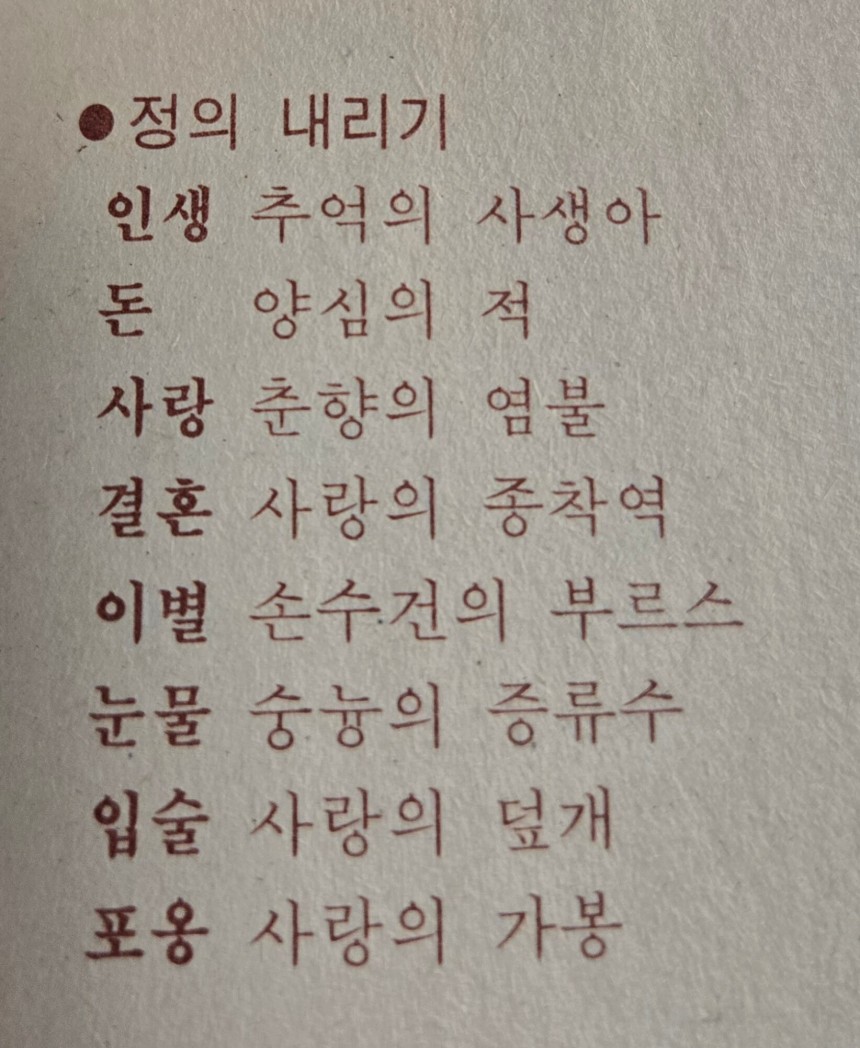 ●정의 내리기
인생 추억의 사생아
돈 양심의 적
사랑 춘향의 염불
결혼 사랑의 종착역
이별 손수건의 부르스
눈물 숭늉의 증류수
입술 사랑의 덮개
포옹 사랑의 가봉